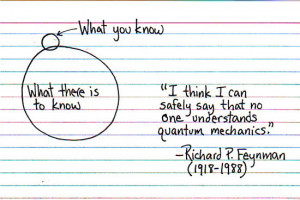 What you know
What there is
to know
"I think I can
safely say that no
one understands
quantum mechanics."
–Richard P. Feynman
(1918-1988)